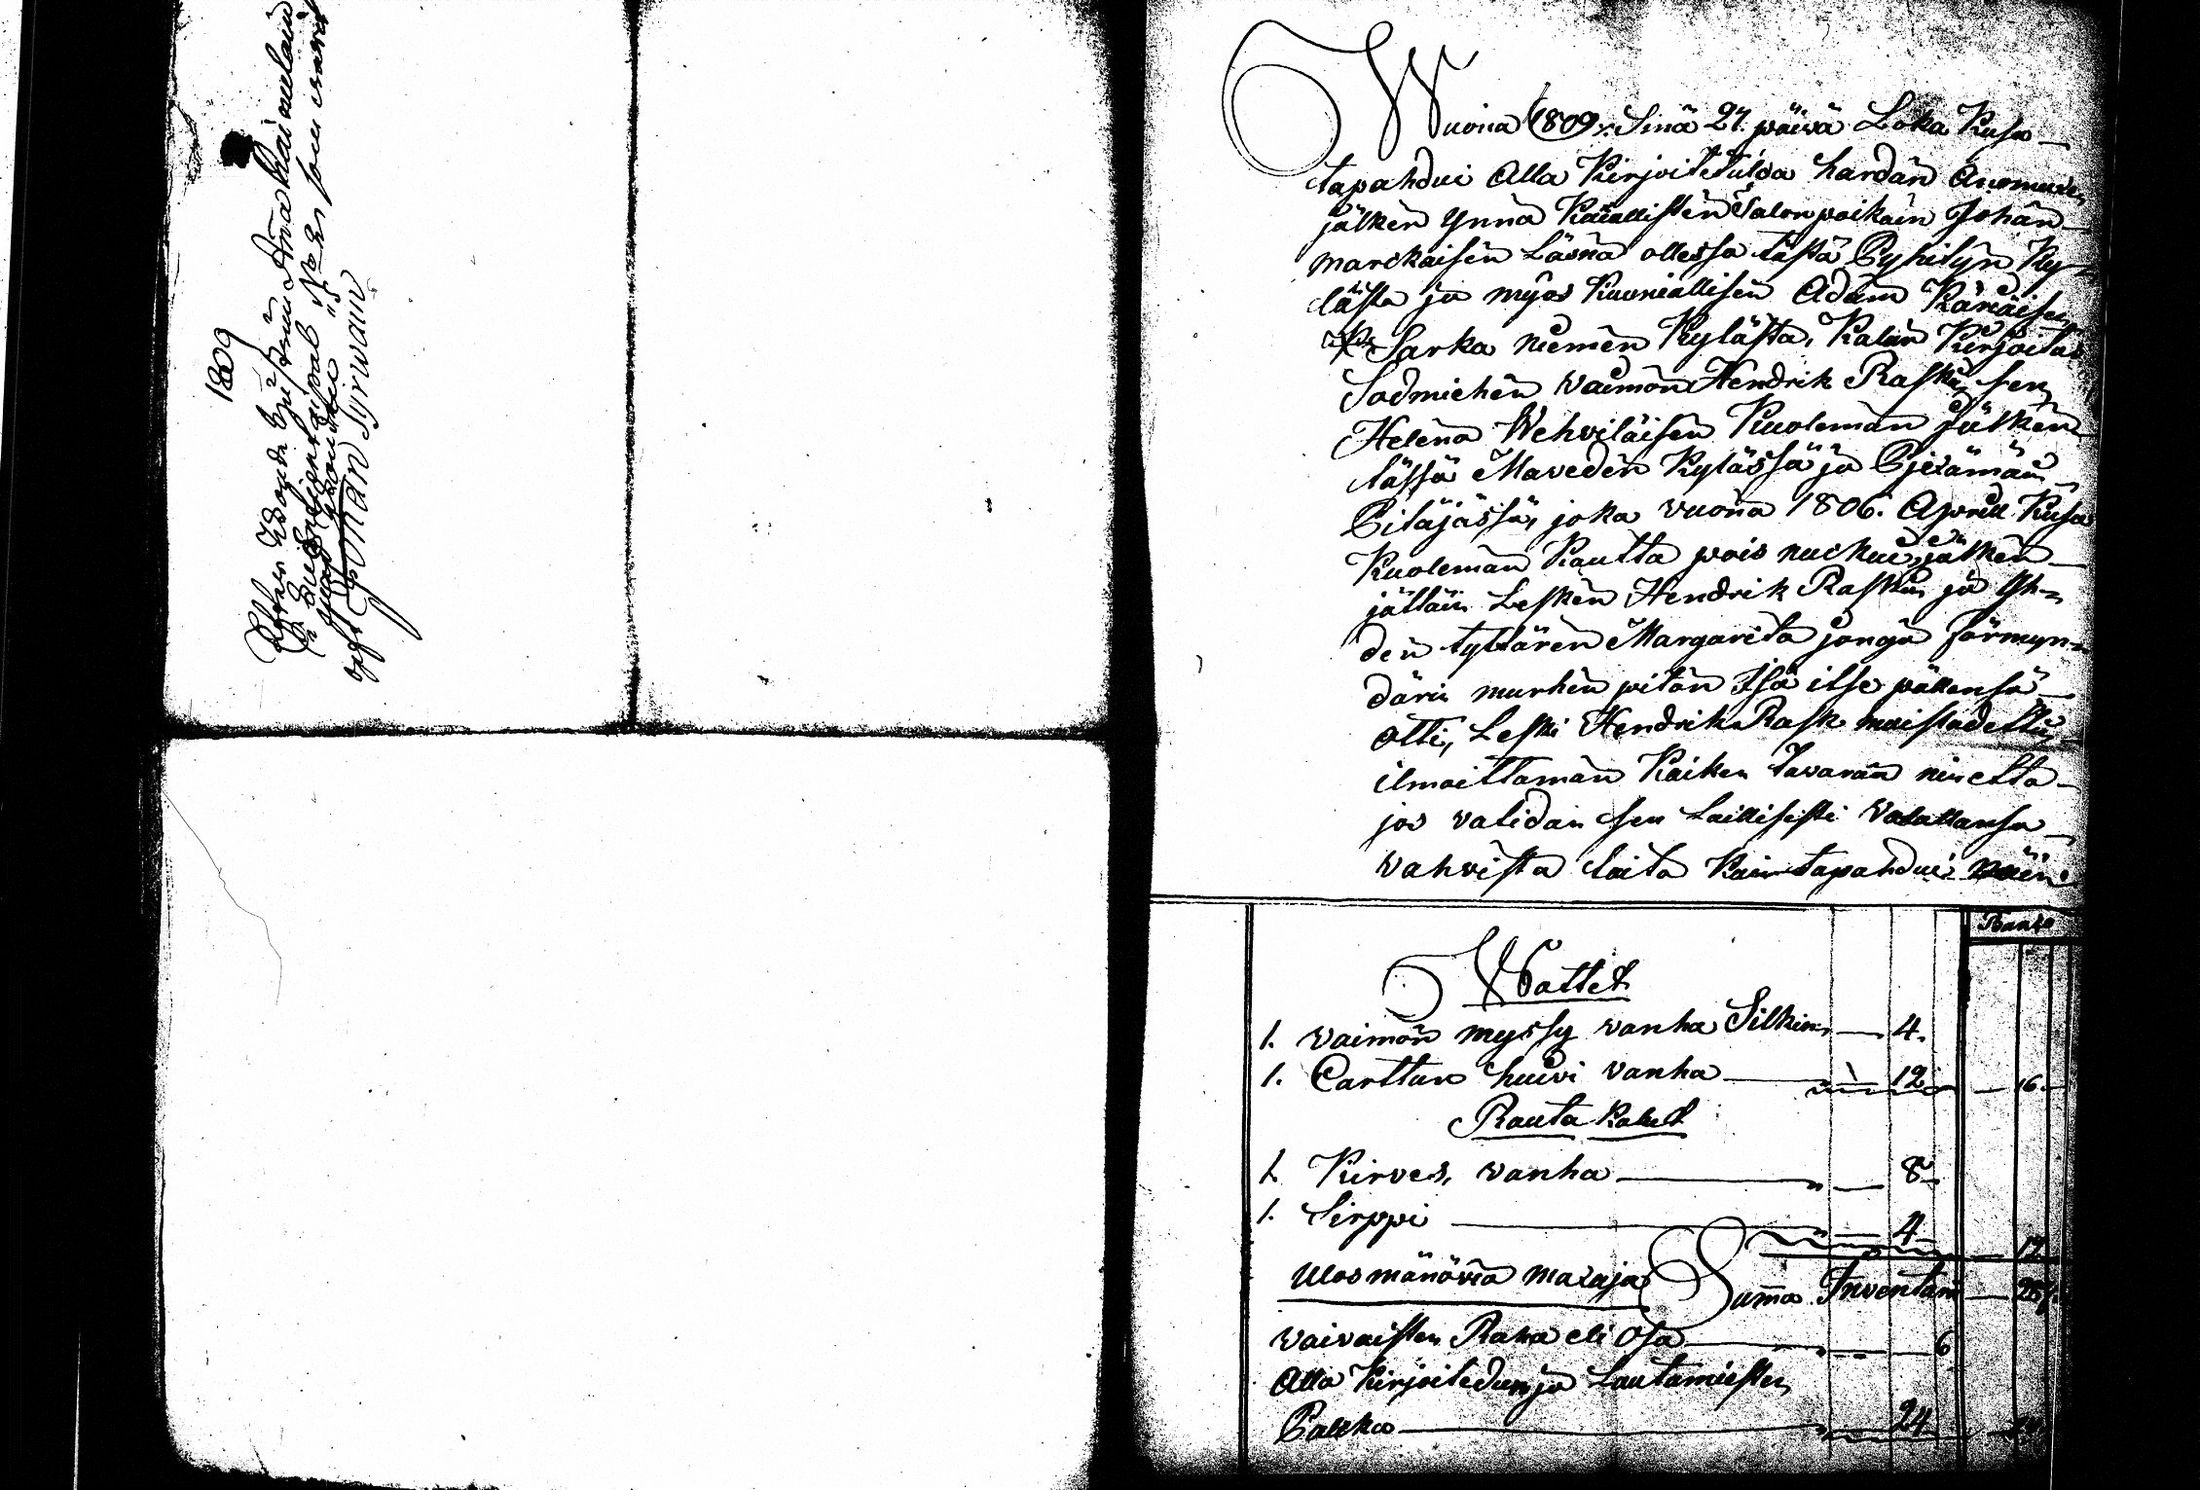 1809
Johan Hirwain
Wuona 1809. Sinä 27. päivä Loka Kusa
tapahdui Alla Kirjoitetulda hardan Anomuxen
jälken ynnä Kuniallisen Talonpoikain Johan
Marckaisen Läsnä ollessa tästä Pyhityn Ky-
lästä ja myös Kuoniallisen Adam Käräisen
Sarka niemen Kylästä, Kalun Kirjoitus
Sodmiehen vaimon Hendrik Raskin sen
Helena Wehviläisen Kuoleman jälken
tässä Maveden Kylässä ja Pjexämän
Pitäjässä, joka vuona 1806. Aprill Kusa
Kuoleman Kautta pois nuckui, jälken
jättäin Lesken Hendrik Raskin ja Yh-
den tyttären Margareta jonga förmyn-
därin murhen pitän Isä itse pällensä
otti, Leski Hendrik Rask muistadettin
ilmoittaman Kaiken tavaran nin etta
jos validan sen Laillisesti Valallansa
vahvista taita Kuin tapahdui näin
Banko
Wattet
1. vaimon myssy vanha Silkin 4.
1. Carttun huivi vanha 12 16.
Rauta Kalut
1. Kirves, vanha 8
1. Sirppi 4 12
Ulos mänöviä maxaja Suma Inventari 28
vaivaisten Raha eli Osa 6
Alla Kirjoitedun ja Lautamiesten
Palkka 24